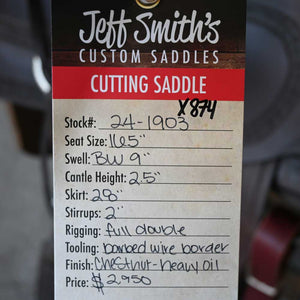 Jeff Smith's
CUSTOM SADDLES
CUTTING SADDLE
X874
Stock#: 24-1903
Seat Size: 16.5"
Swell: BW 9"
Cantle Height: 2.5"
Skirt: 28"
Stirrups: 2"
Rigging: full double
Tooling: barbed wire border
Finish: Chestnut-heavy oil
Price: $2,950